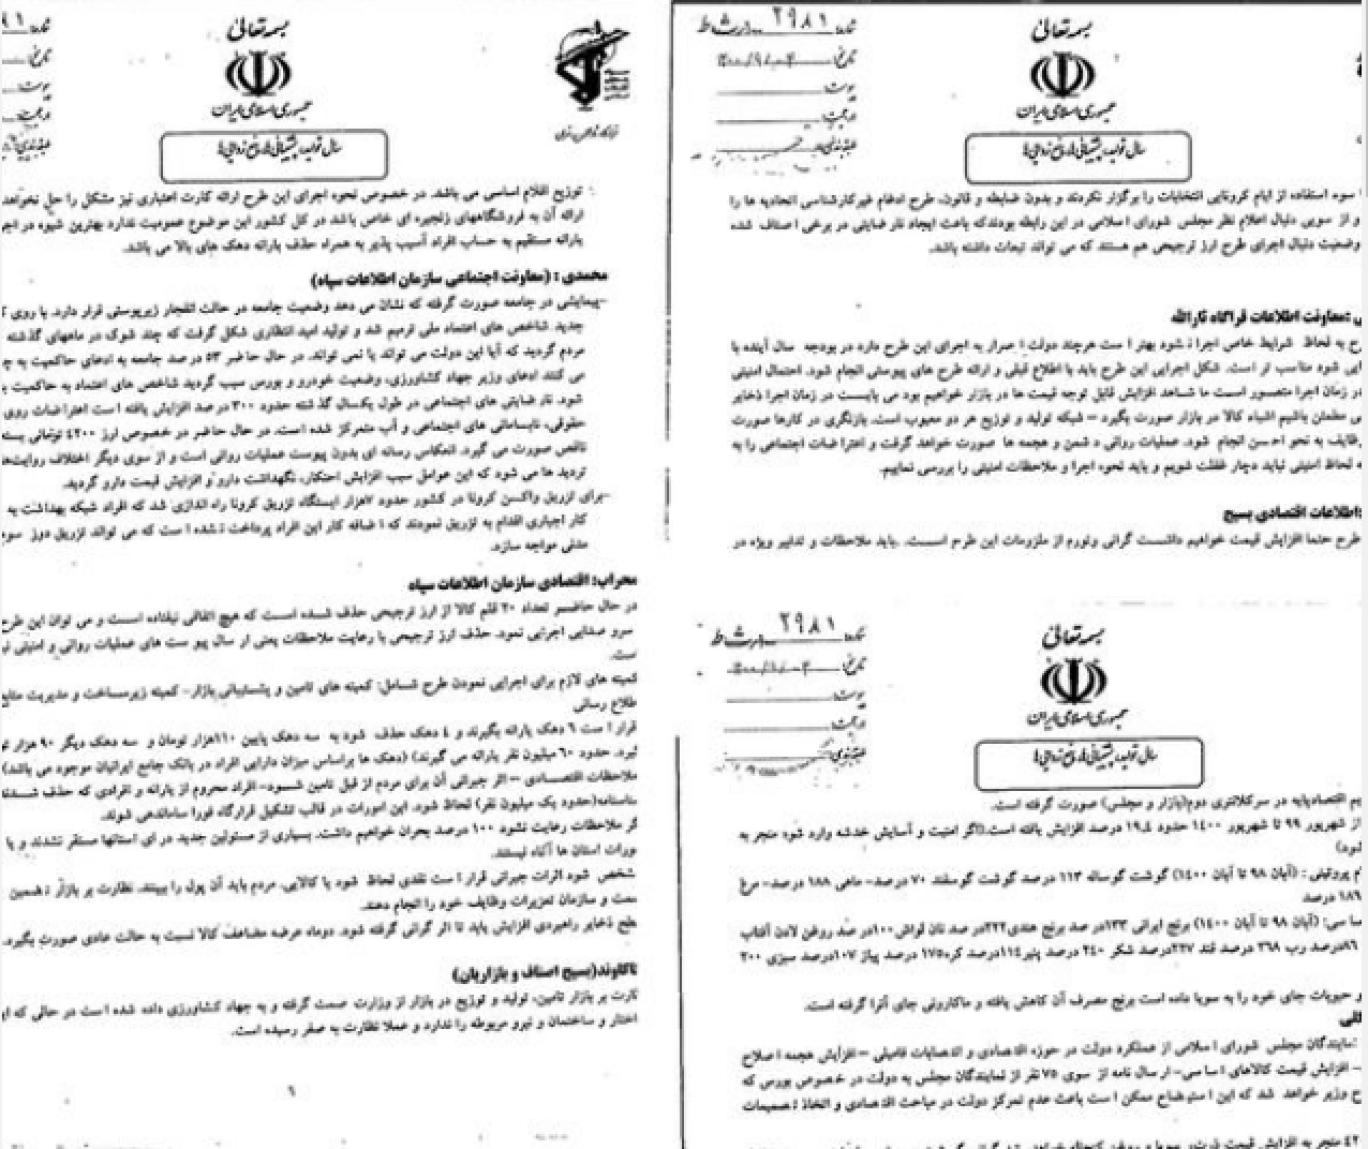 بسمه تعالی
جمهوری اسلامی ایران
سال تولید، پشتیبانی ها، مانع زدایی ها
توزیع اقلام اساسی می باشد. در خصوص نحوه اجرای این طرح ارائه کارت اعتباری نیز مشکل را حل نخواهد
ارائه آن به فروشگاههای زنجیره ای خاص باشد در کل کشور این موضوع عمومیت ندارد بهترین شیوه در اجر
یارانه مستقیم به حساب افراد آسیب پذیر به همراه حذف یارانه دهک های بالا می باشد.
محمدی : (معاونت اجتماعی سازمان اطلاعات سپاه)
-پیمایشی در جامعه صورت گرفته که نشان می دهد وضعیت جامعه در حالت انفجار زیرپوستی قرار دارد. با روی ک
جدید شاخص های اعتماد ملی ترمیم شد و تولید امید انتظاری شکل گرفت که چند شوک در ماههای گذشته
مردم گردید که آیا این دولت می تواند یا نمی تواند. در حال حاضر ۵۳ درصد جامعه به ادعای حاکمیت به چ
می کنند ادعای وزیر جهاد کشاورزی، وضعیت خودرو و بورس سبب گردید شاخص های اعتماد به حاکمیت ب
شود. نارضایتی های اجتماعی در طول یکسال گذشته حدود ۳۰۰ درصد افزایش یافته است اعتراضات روی
حقوقی، نابسامانی های اجتماعی و آب متمرکز شده است. در حال حاضر در خصوص ارز ۴۲۰۰ تومانی بسته
ناقص صورت می گیرد. انعکاس رسانه ای بدون پیوست عملیات روانی است و از سوی دیگر اختلاف روایت‌ه
تردید ها می شود که این عوامل سبب افزایش احتکار، نگهداشت دارو و افزایش قیمت دارو گردید.
-برای تزریق واکسن کرونا در کشور حدود ۷هزار ایستگاه تزریق کرونا راه اندازی شد که افراد شبکه بهداشت به
کار اجباری اقدام به تزریق نمودند که اضافه کار این افراد پرداخت نشده است که می تواند تزریق دوز سوم
منفی مواجه سازد.
محراب: اقتصادی سازمان اطلاعات سپاه
در حال حاضر تعداد ۲۰ قلم کالا از ارز ترجیحی حذف شده است که هیچ اتفاقی نیفتاده است و می توان این طرح
سرو صدایی اجرایی نمود. حذف ارز ترجیحی با رعایت ملاحظات یعنی ارسال پیوست های عملیات روانی و امنیتی
است.
کمیته های لازم برای اجرایی نمودن طرح شامل: کمیته های تامین و پشتیبانی بازار- کمیته زیرساخت و مدیریت منابع
طلاع رسانی
قرار است ۶ دهک یارانه بگیرند و ۴ دهک حذف شود به سه دهک پایین ۱۱۰هزار تومان و سه دهک دیگر ۹۰ هزار تو
گیرد. حدود ۶۰ میلیون نفر یارانه می گیرند) (دهک ها براساس میزان دارایی افراد در بانک جامع ایرانیان موجود می باشد)
ملاحظات اقتصادی – اثر جبرانی آن برای مردم از قبل تامین شود- افراد محروم از یارانه و افرادی که حذف شدند
ناسنامه(حدود یک میلیون نفر) لحاظ شود. این امورات در قالب تشکیل قرارگاه فورا ساماندهی شوند.
گر ملاحظات رعایت نشود ۱۰۰ درصد بحران خواهیم داشت. بسیاری از مسئولین جدید در ای استانها مستقر نشدند و یا
ورات استان ها آگاه نیستند.
شخص شود اثرات جبرانی قرار است نقدی لحاظ شود یا کالایی. مردم باید آن پول را ببینند. نظارت بر بازار تضمین
سمت و سازمان تعزیرات وظایف خود را انجام دهند.
طح ذخایر راهبردی افزایش یابد تا اثر گرانی گرفته شود. دوماه عرضه مضاعف کالا نسبت به حالت عادی صورت بگیرد.
ناکاوند(بسیج اصناف و بازاریان)
نارت بر بازار تامین، تولید و توزیع در بازار از وزارت صمت گرفته و به جهاد کشاورزی داده شده است در حالی که این
اختار و ساختمان و نیرو مربوطه را ندارد و عملا نظارت به صفر رسیده است.
۹
بسمه تعالی
جمهوری اسلامی ایران
سال تولید، پشتیبانی ها، مانع زدایی ها
شماره ۲۹۸۱
تاریخ
پیوست
طبقه بندی
سوء استفاده از ایام کرونایی انتخابات را برگزار نکردند و بدون ضابطه و قانون، طرح ادغام غیرکارشناسی اتحادیه ها را
و از سویی دنبال اعلام نظر مجلس شورای اسلامی در این رابطه بودندکه باعث ایجاد نارضایتی در برخی اصناف شده
وضعیت دنبال اجرای طرح ارز ترجیحی هم هستند که می تواند تبعات داشته باشد.
ی :معاونت اطلاعات قرارگاه ثارالله
رح به لحاظ شرایط خاص اجرا نشود بهتر است هرچند دولت اصرار به اجرای این طرح دارد در بودجه سال آینده با
ایی شود مناسب تر است. شکل اجرایی این طرح باید با اطلاع قبلی و ارائه طرح های پیوستی انجام شود. احتمال امنیتی
در زمان اجرا متصور است ما شاهد افزایش قابل توجه قیمت ها در بازار خواهیم بود می بایست در زمان اجرا ذخایر
ی مطمئن باشیم اشباء کالا در بازار صورت بگیرد – شبکه تولید و توزیع هر دو معیوب است. بازنگری در کارها صورت
ظایف به نحو احسن انجام شود. عملیات روانی دشمن و هجمه ها صورت خواهد گرفت و اعتراضات اجتماعی را به
ه لحاظ امنیتی نباید دچار غفلت شویم و باید نحوه اجرا و ملاحظات امنیتی را بررسی نماییم.
:اطلاعات اقتصادی بسیج
طرح حتما افزایش قیمت خواهیم داشت گرانی وتورم از ملزومات این طرح است. باید ملاحظات و تدابیر ویژه در
بسمه تعالی
جمهوری اسلامی ایران
سال تولید، پشتیبانی ها، مانع زدایی ها
شماره ۲۹۸۱
تاریخ
پیوست
طبقه بندی
یم اقتصادپایه در سرکلانتری دوم(بازار و مجلس) صورت گرفته است.
از شهریور ۹۹ تا شهریور ۱۴۰۰ حدود ۱۹.۴ درصد افزایش یافته است.(اگر امنیت و آسایش خدشه وارد شود منجر به
شود)
م پروتئینی : (آبان ۹۸ تا آبان ۱۴۰۰) گوشت گوساله ۱۱۳ درصد گوشت گوسفند ۷۰ درصد- ماهی ۱۸۸ درصد- مرغ
۱۸۶ درصد
ساسی: (آبان ۹۸ تا آبان ۱۴۰۰) برنج ایرانی ۱۳۳در صد برنج هندی۲۲۲در صد نان لواش۱۰۰در صد روغن لادن آفتاب
۹۶درصد رب ۲۶۸ درصد قند ۲۳۷درصد شکر ۲۴۰ درصد پنیر۱۱۴درصد کره۱۷۵ درصد پیاز ۱۰۷درصد سبزی ۲۰۰
و حبوبات جای خود را به سویا داده است برنج مصرف آن کاهش یافته و ماکارونی جای آنرا گرفته است.
نمایندگان مجلس شورای اسلامی از عملکرد دولت در حوزه اقتصادی و انتصابات فامیلی – افزایش هجمه اصلاح
– افزایش قیمت کالاهای اساسی- ارسال نامه از سوی ۷۵ نفر از نمایندگان مجلس به دولت در خصوص بورس که
ح وزیر خواهد شد که این استیضاح ممکن است باعث عدم تمرکز دولت در مباحث اقتصادی و اتخاذ تصمیمات